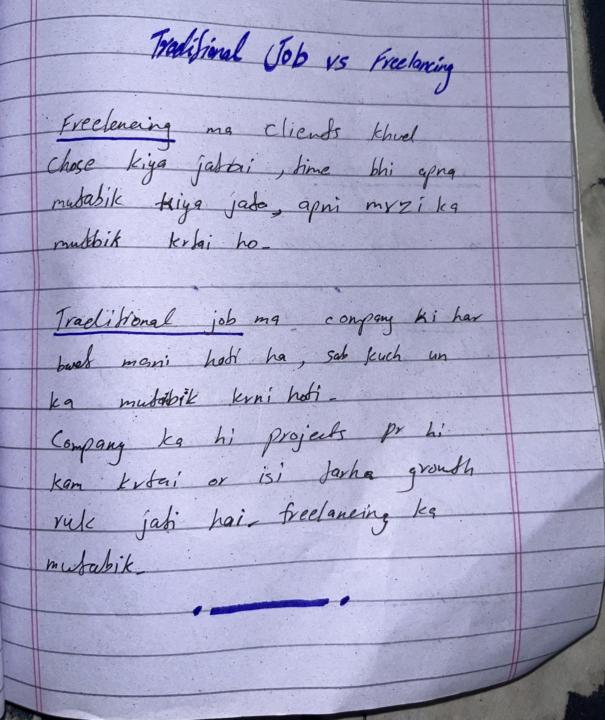 Traditional Job vs Freelancing
Freelencing ma clients khud
chose kiya jatai, time bhi apna
mutabik kiya jato, apni mrzi ka
mutbik krtai ho-
Traditional job ma company ki har
bwat mani hoti ha, sab kuch un
ka mutabik krni hoti-
Company ka hi projects pr hi
kam krtai or isi tarha growth
ruk jati hai- freelancing ka
mutabik-